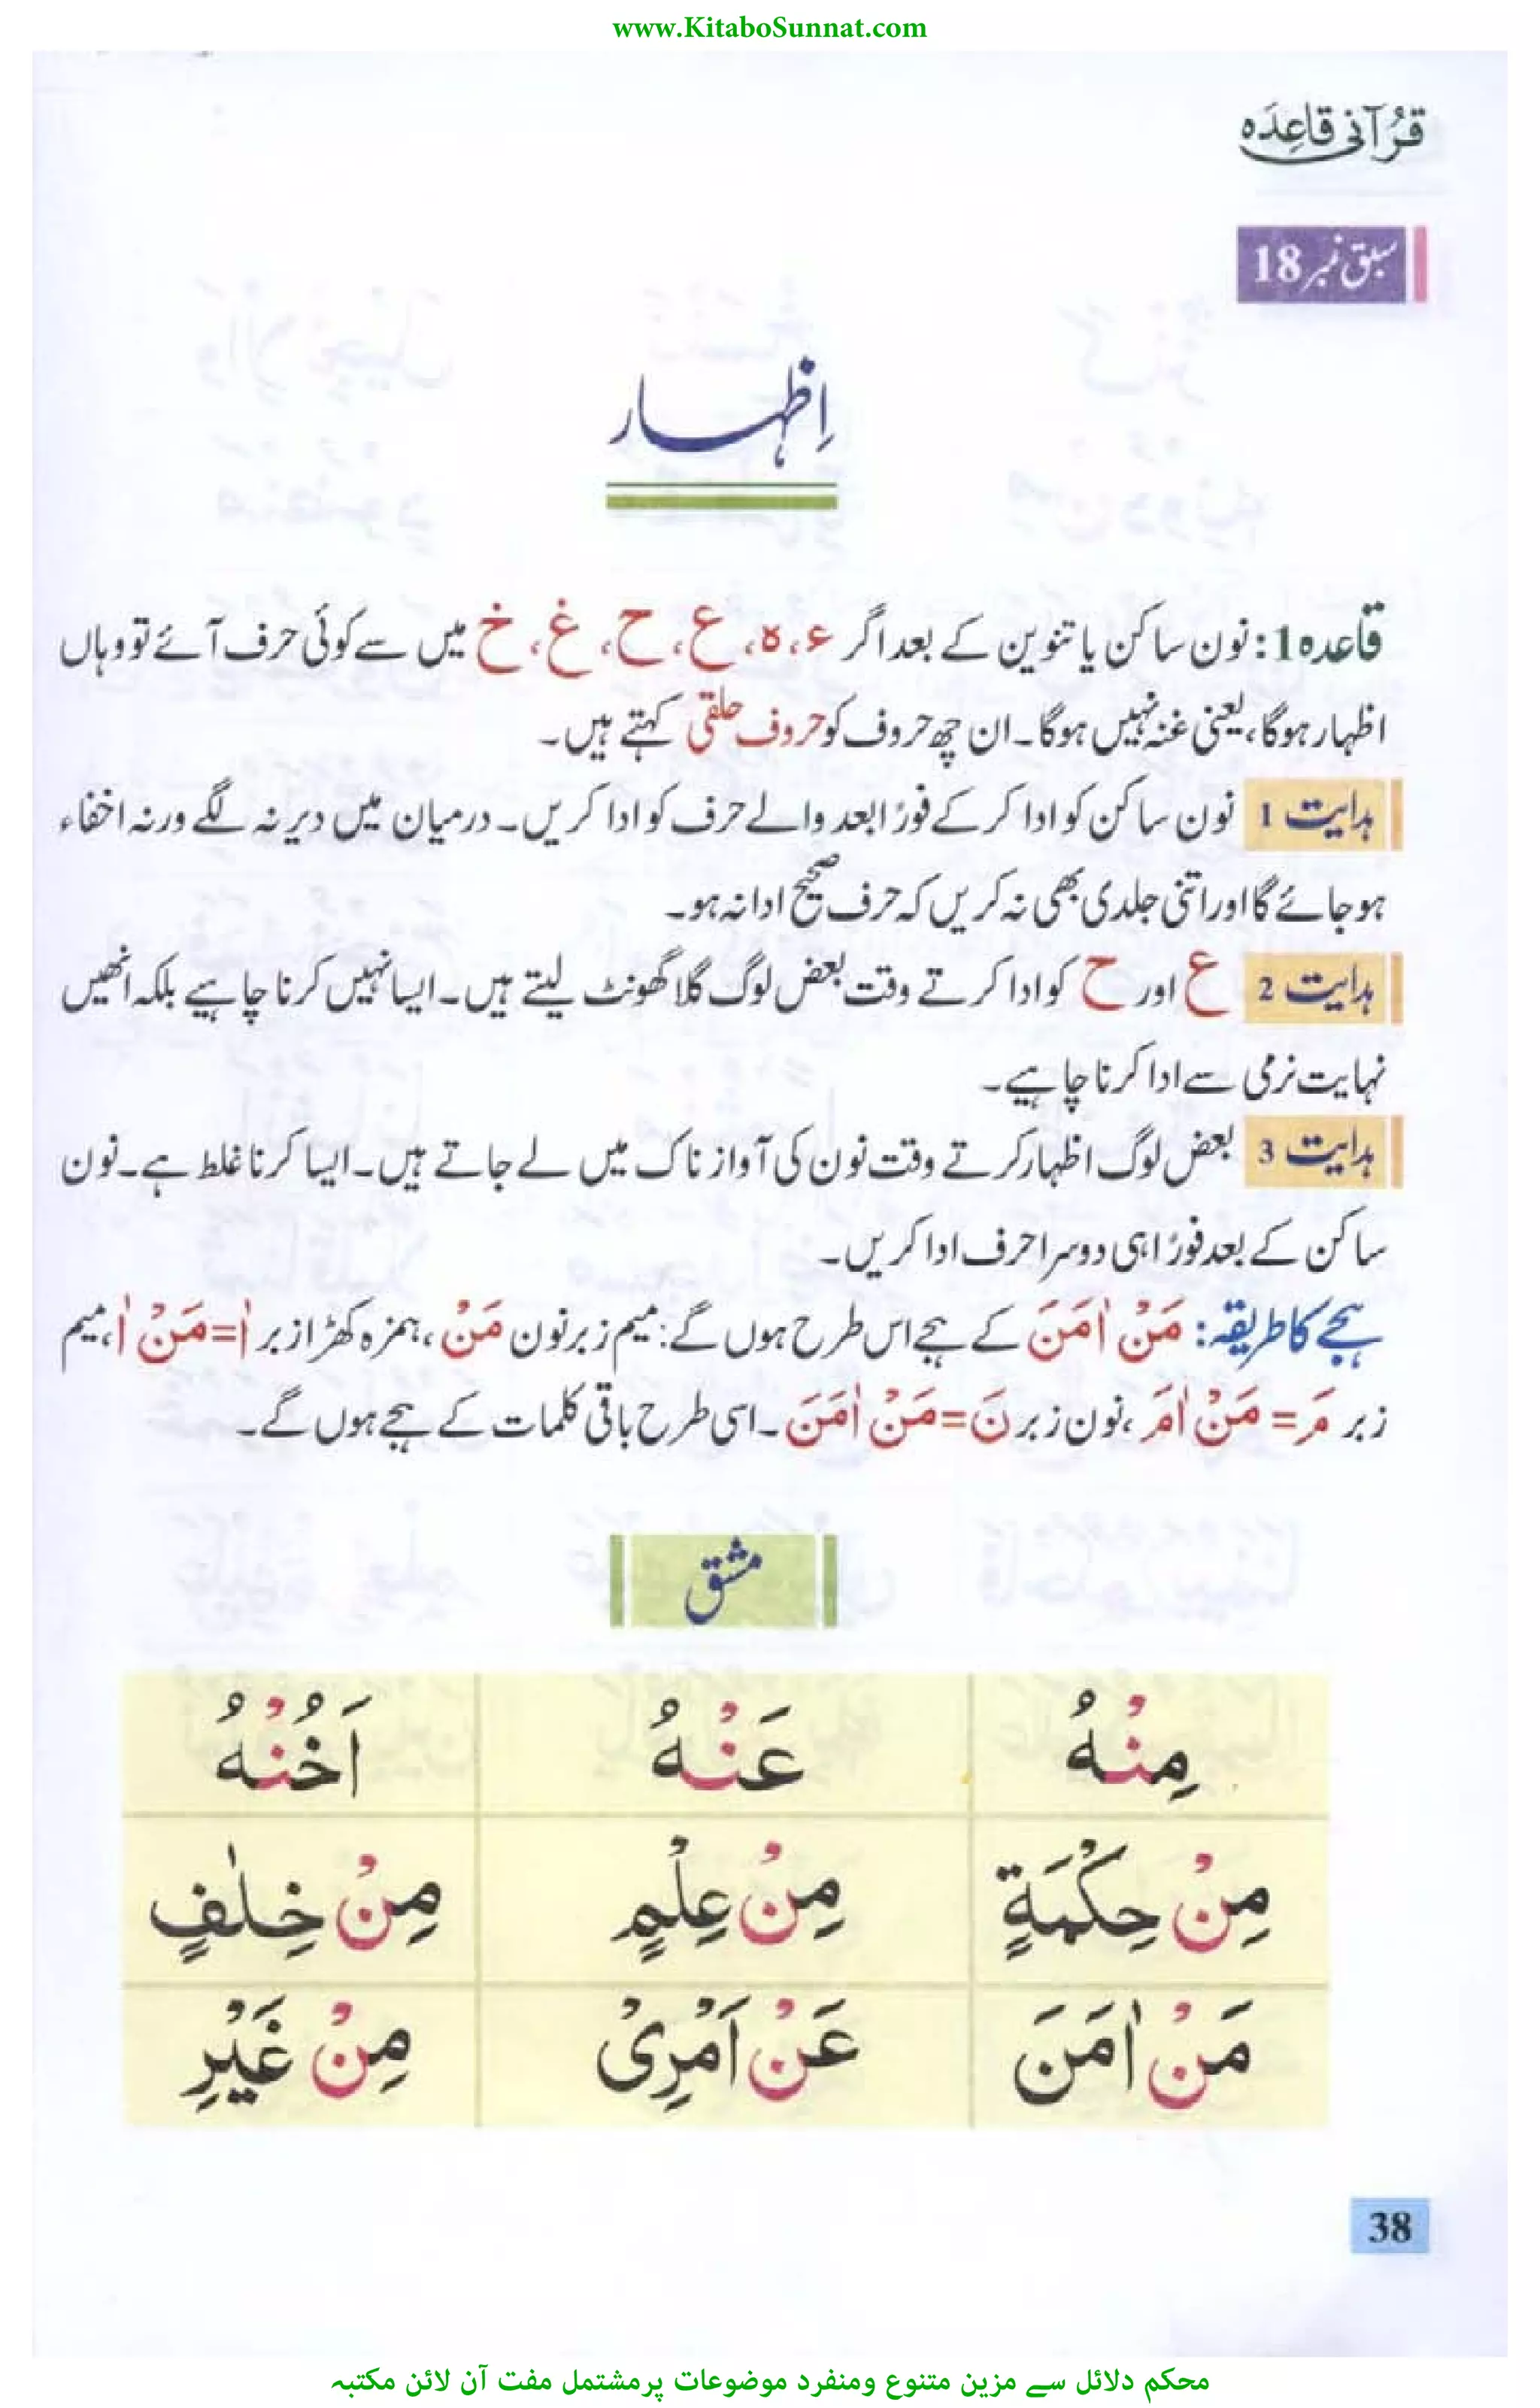 www.KitaboSunnat.com
قُرآنی قاعِدَہ
سبق نمبر 18
اِظہار
قاعدہ 1: نون ساکن یا تنوین کے بعد اگر ء، ہ، ع، ح، غ، خ میں سے کوئی حرف آئے تو وہاں
اظہار ہوگا، یعنی غنہ نہیں ہوگا۔ ان چھ حروف کو حروف حلقی کہتے ہیں۔
ہدایت 1 نون ساکن کو ادا کر کے فورًا بعد والے حرف کو ادا کریں۔ درمیان میں دیر نہ لگے ورنہ اخفاء
ہو جائے گا اور اتنی جلدی بھی نہ کریں کہ حرف صحیح ادا نہ ہو۔
ہدایت 2 ع اور ح کو ادا کرتے وقت بعض لوگ گلا گھونٹ لیتے ہیں۔ ایسا نہیں کرنا چاہیے بلکہ انھیں
نہایت نرمی سے ادا کرنا چاہیے۔
ہدایت 3 بعض لوگ اظہار کرتے وقت نون کی آواز ناک میں لے جاتے ہیں۔ ایسا کرنا غلط ہے۔ نون
ساکن کے بعد فورًا ہی دوسرا حرف ادا کریں۔
ہجے کا طریقہ: مَنْ اٰمَنَ کے ہجے اس طرح ہوں گے: میم زبر نون مَنْ، ہمزہ کھڑا زبر اٰ=مَنْ اٰ، میم
زبر مَ= مَنْ اٰمَ، نون زبر نَ=مَنْ اٰمَنَ۔ اسی طرح باقی کلمات کے ہجے ہوں گے۔
مشق
مِنْهُ عَنْهُ اَخُنْهُ
مِنْ حِكْمَةٍ مِنْ عِلْمٍ مِنْ خِلٰفٍ
مَنْ اٰمَنَ عَنْ اَمْرِیْ مِنْ غَيْرِ
38
محکم دلائل سے مزین متنوع ومنفرد موضوعات پر مشتمل مفت آن لائن مکتبہ